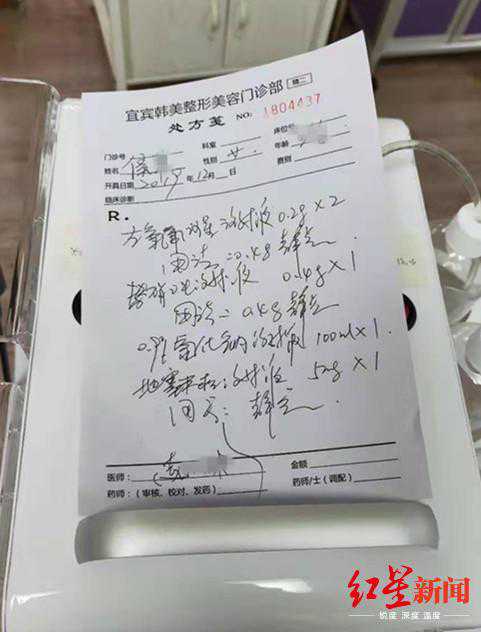 宜宾韩美整形美容门诊部
处方笺 NO: 1804437
门诊号 科室 床位号
姓名 性别 女 年龄
开具日期 2019年12月 日 费别
临床诊断
R.
注射液 0.2g×2
用法: 0.4g 静点
注射液 0.4g×1
用法: 0.4g 静点
0.9% 氯化钠注射液 100ml×1
地塞米松注射液 5mg×1
用法: 静点
医师: 金额:
药师:(审核、校对、发药) 药师/士(调配)
红星新闻
锐度 深度 温度